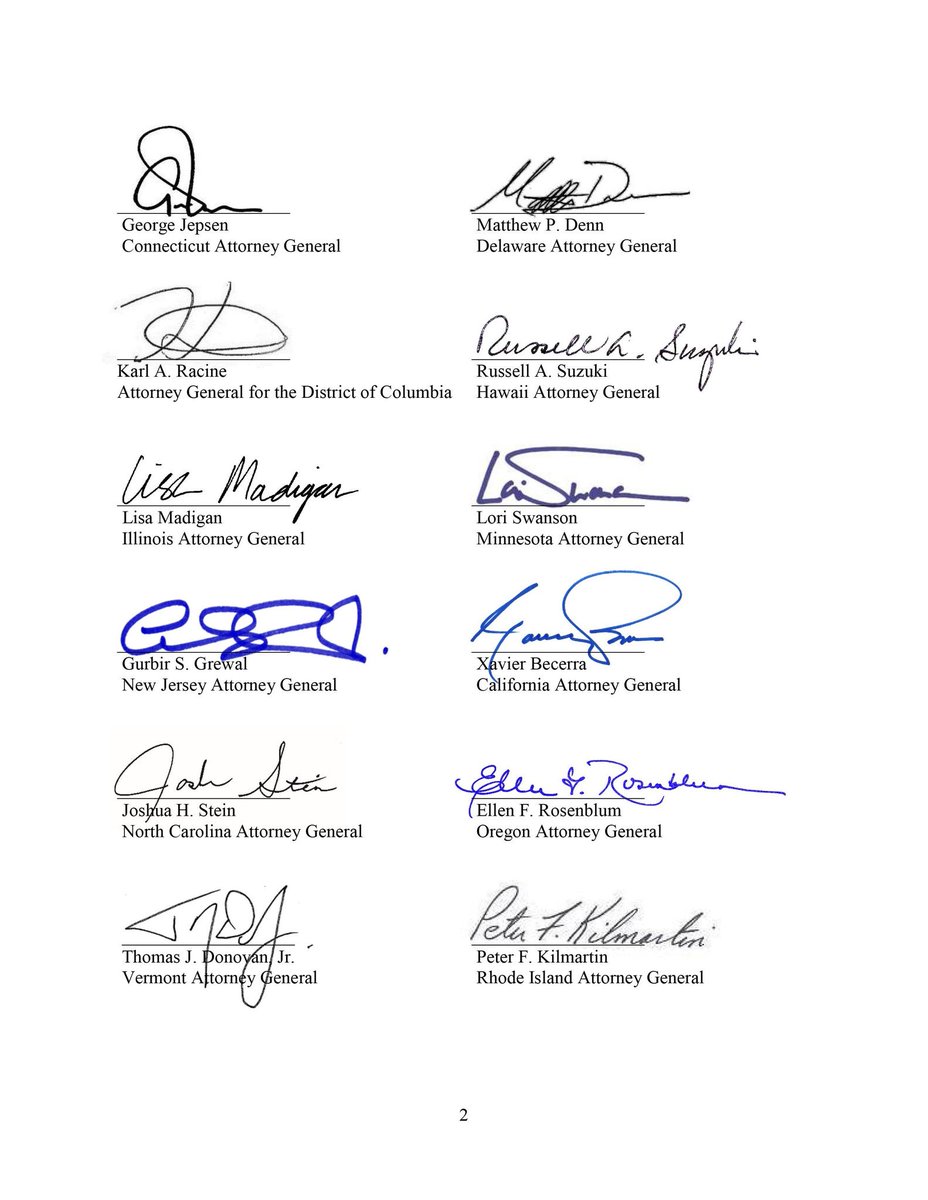 George Jepsen
Connecticut Attorney General
Matthew P. Denn
Delaware Attorney General
Karl A. Racine
Attorney General for the District of Columbia
Russell A. Suzuki
Russell A. Suzuki
Hawaii Attorney General
Lisa Madigan
Lisa Madigan
Illinois Attorney General
Lori Swanson
Lori Swanson
Minnesota Attorney General
Gurbir S. Grewal
New Jersey Attorney General
Xavier Becerra
California Attorney General
Josh Stein
Joshua H. Stein
North Carolina Attorney General
Ellen F. Rosenblum
Ellen F. Rosenblum
Oregon Attorney General
Thomas J. Donovan, Jr.
Vermont Attorney General
Peter F. Kilmartin
Peter F. Kilmartin
Rhode Island Attorney General
2